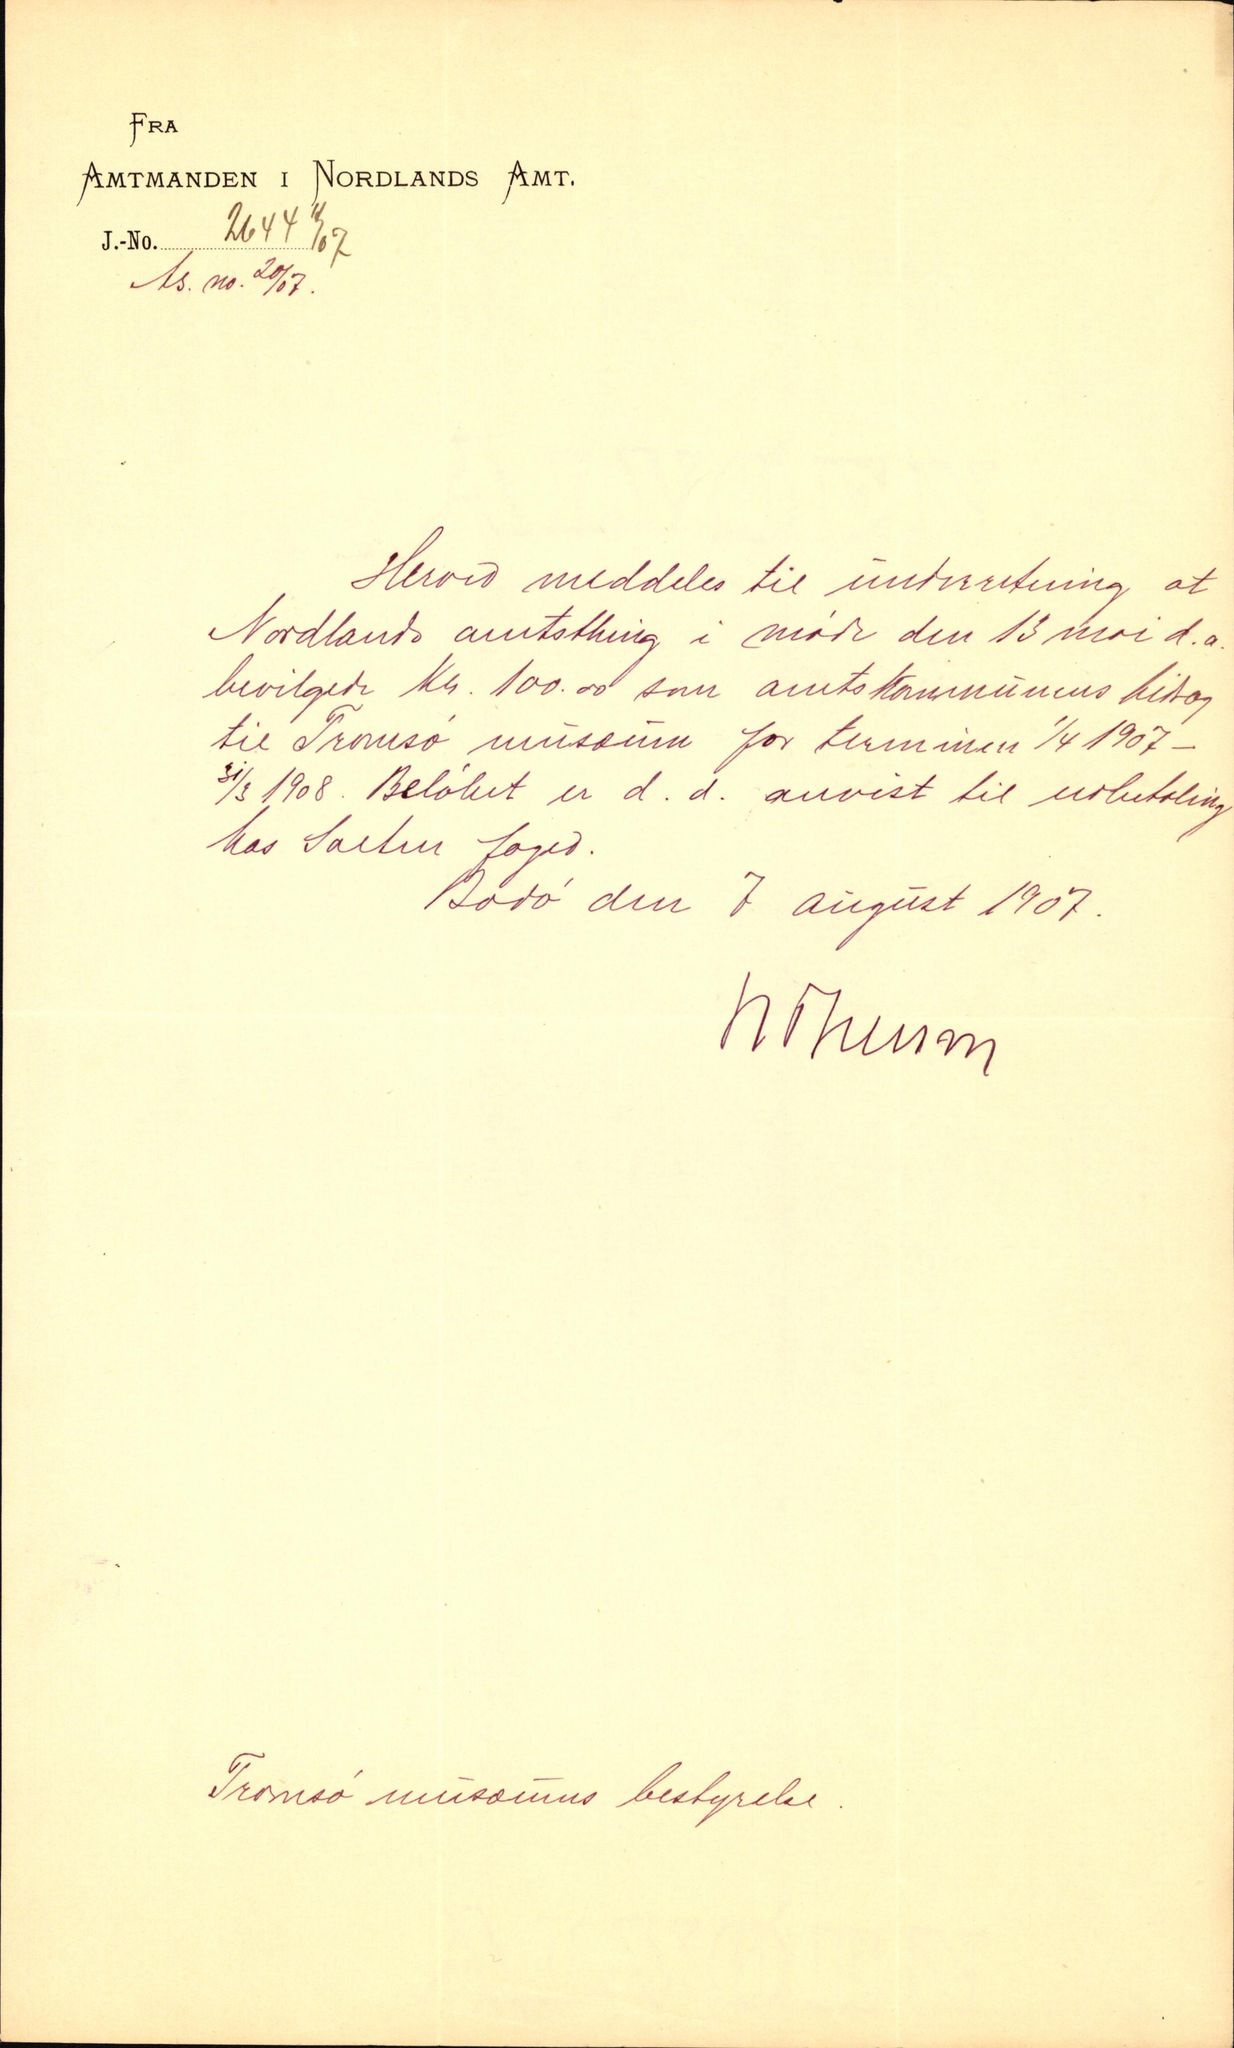 FRA
AMTMANDEN I NORDLANDS AMT.
J.-No. 2644 /07
As. no. 20/07.
Herved meddeles til underretning at
Nordlands amtsthing i møde den 13 mai d.a.
bevilgede Kr. 100.00 som amtskommunens bidrag
til Tromsø musæum for terminen 1/4 1907 –
31/3 1908. Beløbet er d.d. anvist til udbetaling
hos Salten foged.
Bodø den 7 august 1907.
Tromsø musæums bestyrelse.